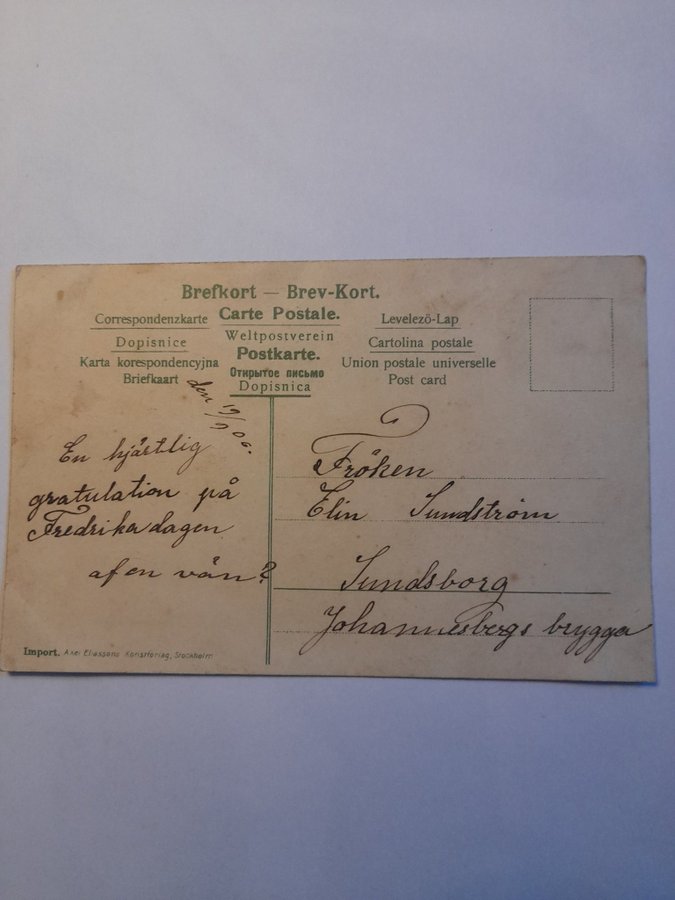 Brefkort — Brev-Kort.
Correspondenzkarte Carte Postale. Levelező-Lap
Dopisnice Weltpostverein Cartolina postale
Karta korespondencyjna Postkarte. Union postale universelle
Briefkaart Открытое письмо Post card
Dopisnica
den 19/9 06.
En hjärtlig
gratulation på
Fredrikadagen
af en vän?
Fröken
Elin Sundström
Sundsborg
Johannesbergs brygga
Import. Axel Eliassons Konstförlag, Stockholm